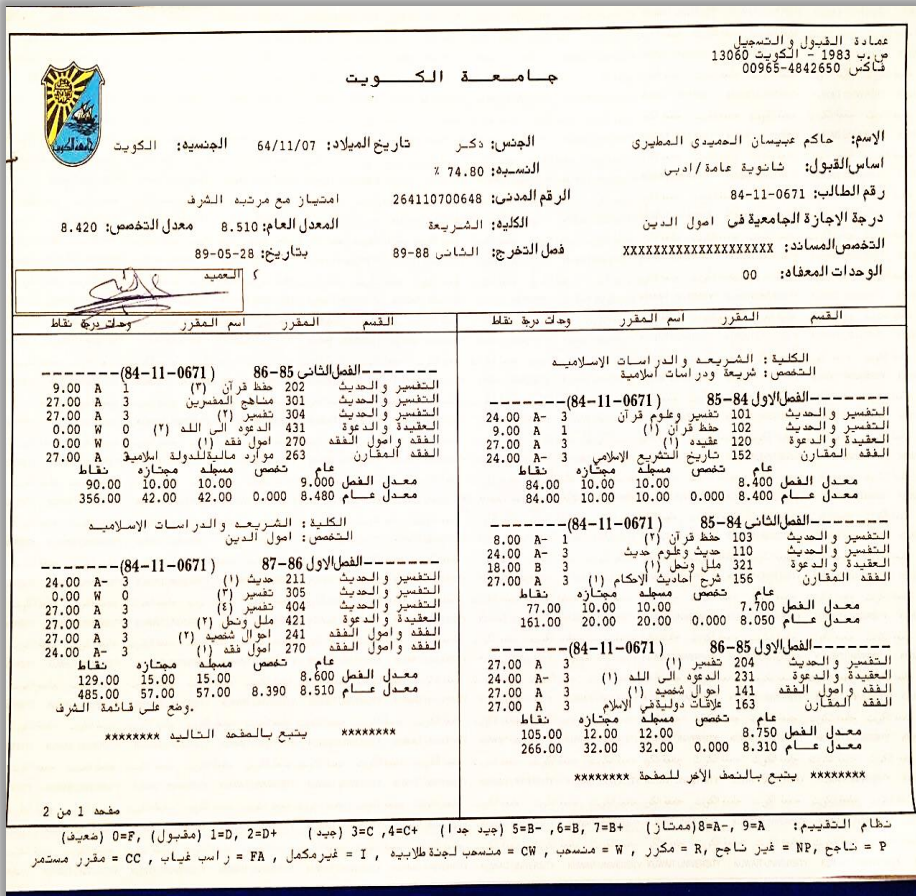 عمادة القبول والتسجيل
ص.ب 1983 - الكويت 13060
فاكس 00965-4842650
جامعة الكويت
جامعة الكويت
الإسم: حاكم عبيسان الحميدى المطيرى الجنس: ذكر تاريخ الميلاد: 64/11/07 الجنسيه: الكويت
اساس القبول: ثانوية عامة/ادبى النسبه: 74.80 %
رقم الطالب: 84-11-0671 الرقم المدنى: 264110700648 امتياز مع مرتبه الشرف
درجة الإجازة الجامعية فى اصول الدين الكليه: الشريعة المعدل العام: 8.510 معدل التخصص: 8.420
التخصص المساند: XXXXXXXXXXXXXXXXXXXX فصل التخرج: الثانى 88-89 بتاريخ: 89-05-28
الوحدات المعفاه: 00
العميد
القسم المقرر اسم المقرر وحدات درجة نقاط
الكلية: الشريعه والدراسات الإسلاميه
التخصص: شريعة ودراسات اسلامية
--------الفصل الاول 84-85 (84-11-0671)--------
التفسير والحديث 101 تفسير وعلوم قرآن 3 A- 24.00
التفسير والحديث 102 حفظ قرآن (١) 1 A 9.00
العقيدة والدعوة 120 عقيده (١) 3 A 27.00
الفقه المقارن 152 تاريخ التشريع الإسلامي 3 A- 24.00
عام تخصص مسجله مجتازه نقاط
معدل الفصل 8.400 10.00 10.00 84.00
معدل عـام 8.400 0.000 10.00 10.00 84.00
--------الفصل الثانى 84-85 (84-11-0671)--------
التفسير والحديث 103 حفظ قرآن (٢) 1 A- 8.00
التفسير والحديث 110 حديث وعلوم حديث 3 A- 24.00
العقيدة والدعوة 321 ملل ونحل (١) 3 B 18.00
الفقه المقارن 156 شرح احاديث الاحكام (١) 3 A 27.00
عام تخصص مسجله مجتازه نقاط
معدل الفصل 7.700 10.00 10.00 77.00
معدل عـام 8.050 0.000 20.00 20.00 161.00
--------الفصل الاول 85-86 (84-11-0671)--------
التفسير والحديث 204 تفسير (١) 3 A 27.00
العقيدة والدعوة 231 الدعوه الى الله (١) 3 A- 24.00
الفقه واصول الفقه 141 احوال شخصيه (١) 3 A 27.00
الفقه المقارن 163 علاقات دولية فى الاسلام 3 A 27.00
عام تخصص مسجله مجتازه نقاط
معدل الفصل 8.750 12.00 12.00 105.00
معدل عـام 8.310 0.000 32.00 32.00 266.00
******** يتبع بالنصف الآخر للصفحة ********
القسم المقرر اسم المقرر وحدات درجة نقاط
--------الفصل الثانى 85-86 (84-11-0671)--------
التفسير والحديث 202 حفظ قرآن (٣) 1 A 9.00
التفسير والحديث 301 مناهج المفسرين 3 A 27.00
التفسير والحديث 304 تفسير (٢) 3 A 27.00
العقيدة والدعوة 431 الدعوه الى الله (٢) 0 W 0.00
الفقه واصول الفقه 270 اصول فقه (١) 0 W 0.00
الفقه المقارن 263 موارد مالية للدولة اسلامية 3 A 27.00
عام تخصص مسجله مجتازه نقاط
معدل الفصل 9.000 10.00 10.00 90.00
معدل عـام 8.480 0.000 42.00 42.00 356.00
الكلية: الشريعه والدراسات الإسلاميه
التخصص: اصول الدين
--------الفصل الاول 86-87 (84-11-0671)--------
التفسير والحديث 211 حديث (١) 3 A- 24.00
التفسير والحديث 305 تفسير (٣) 0 W 0.00
التفسير والحديث 404 تفسير (٤) 3 A 27.00
العقيدة والدعوة 421 ملل ونحل (٢) 3 A 27.00
الفقه واصول الفقه 241 احوال شخصيه (٢) 3 A 27.00
الفقه واصول الفقه 270 اصول فقه (١) 3 A- 24.00
عام تخصص مسجله مجتازه نقاط
معدل الفصل 8.600 15.00 15.00 129.00
معدل عـام 8.510 8.390 57.00 57.00 485.00
وضع على قائمة الشرف.
******** يتبع بالصفحه التاليه ********
صفحه 1 من 2
نظام التقييم: A=9 ,A-=8(ممتاز) B+=7 ,B=6 ,B-=5 (جيد جدا) C+=4 ,C=3 (جيد) D+=2 ,D=1 (مقبول) ,F=0 (ضعيف)
P = ناجح ,NP= غير ناجح ,R = مكرر , W = منسحب , CW = منسحب لجنة طلابيه , I = غير مكمل , FA = راسب غياب , CC = مقرر مستمر